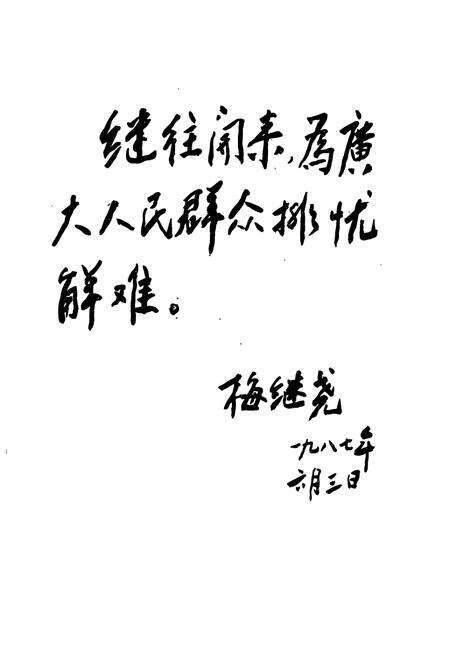 继往开来，为廣
大人民群众排忧
解难。
梅继尧
一九八七年
六月三日